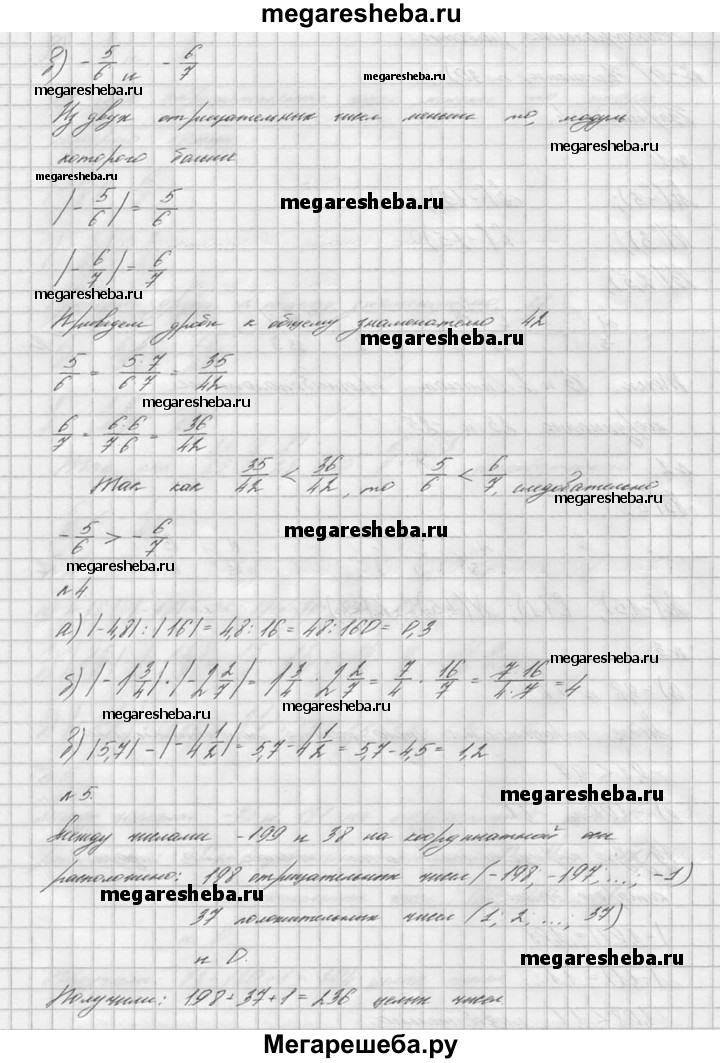 megaresheba.ru
в) -5/6 и -6/7
megaresheba.ru
megaresheba.ru
Из двух отрицательных чисел меньше то, модуль
megaresheba.ru
которого больше
megaresheba.ru
|-5/6| = 5/6
megaresheba.ru
|-6/7| = 6/7
megaresheba.ru
Приведем дроби к общему знаменателю 42
megaresheba.ru
5/6 = 5·7/6·7 = 35/42
megaresheba.ru
6/7 = 6·6/7·6 = 36/42
Так как 35/42 < 36/42, то 5/6 < 6/7, следовательно
megaresheba.ru
megaresheba.ru
-5/6 > -6/7
megaresheba.ru
№4
а) |-4,8| : |16| = 4,8 : 16 = 48 : 160 = 0,3
megaresheba.ru
б) |-1 3/4| · |-2 2/7| = 1 3/4 · 2 2/7 = 7/4 · 16/7 = 7·16/4·7 = 4
megaresheba.ru
megaresheba.ru
в) |5,7| - |-4 1/2| = 5,7 - 4 1/2 = 5,7 - 4,5 = 1,2
№5.
megaresheba.ru
Между числами -199 и 38 на координатной оси
расположено: 198 отрицательных чисел (-198; -197; ...; -1)
megaresheba.ru
37 положительных чисел (1; 2; ...; 37)
и 0.
megaresheba.ru
Получили: 198 + 37 + 1 = 236 целых чисел
Мегарешеба.ру